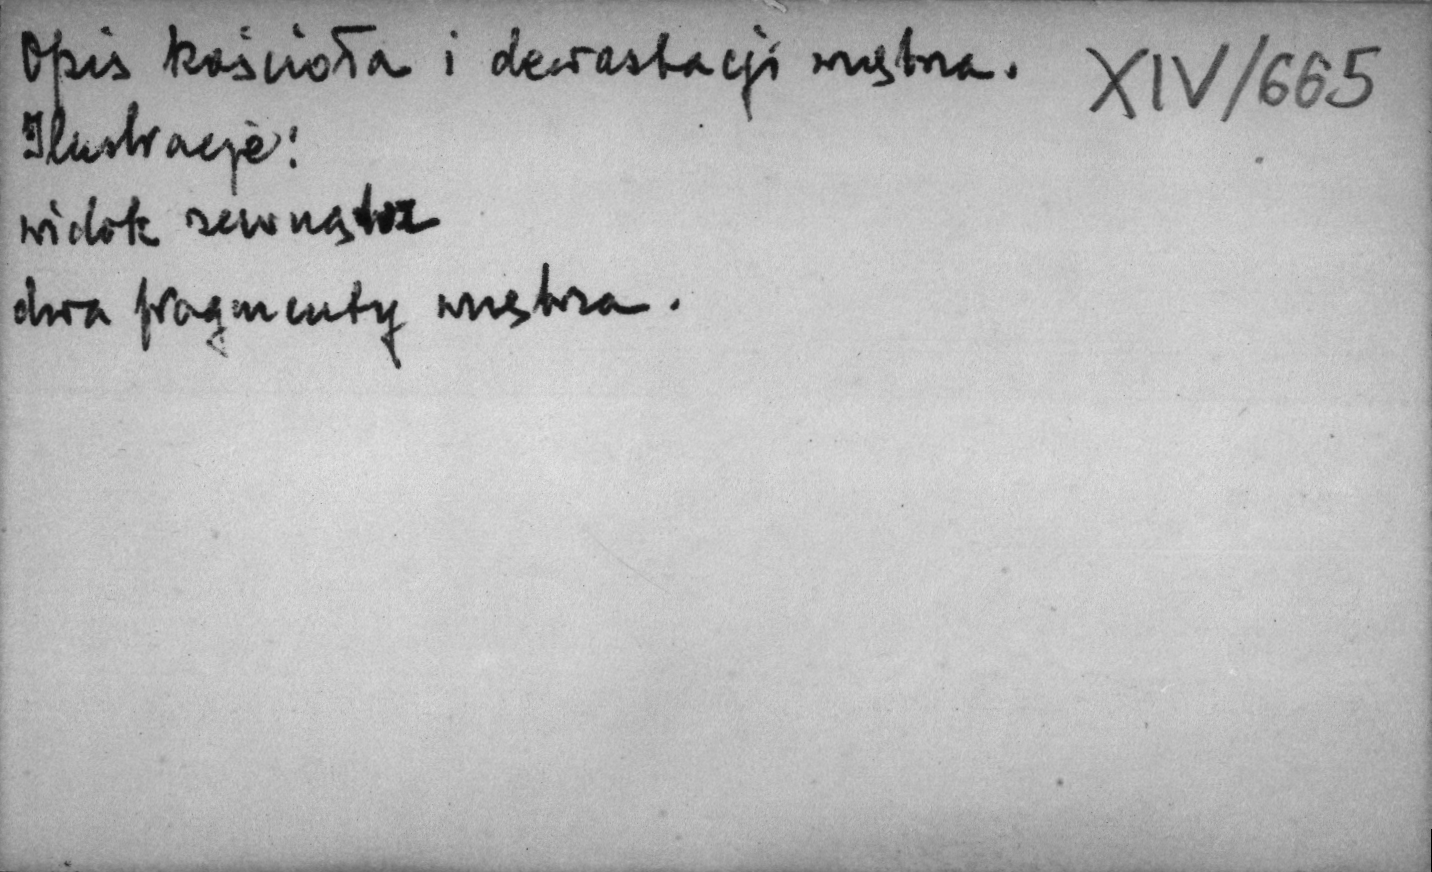 Opis kościoła i dewastacji wnętrza. XIV/665
Ilustracje:
widok zewnątrz
dwa fragmenty wnętrza.